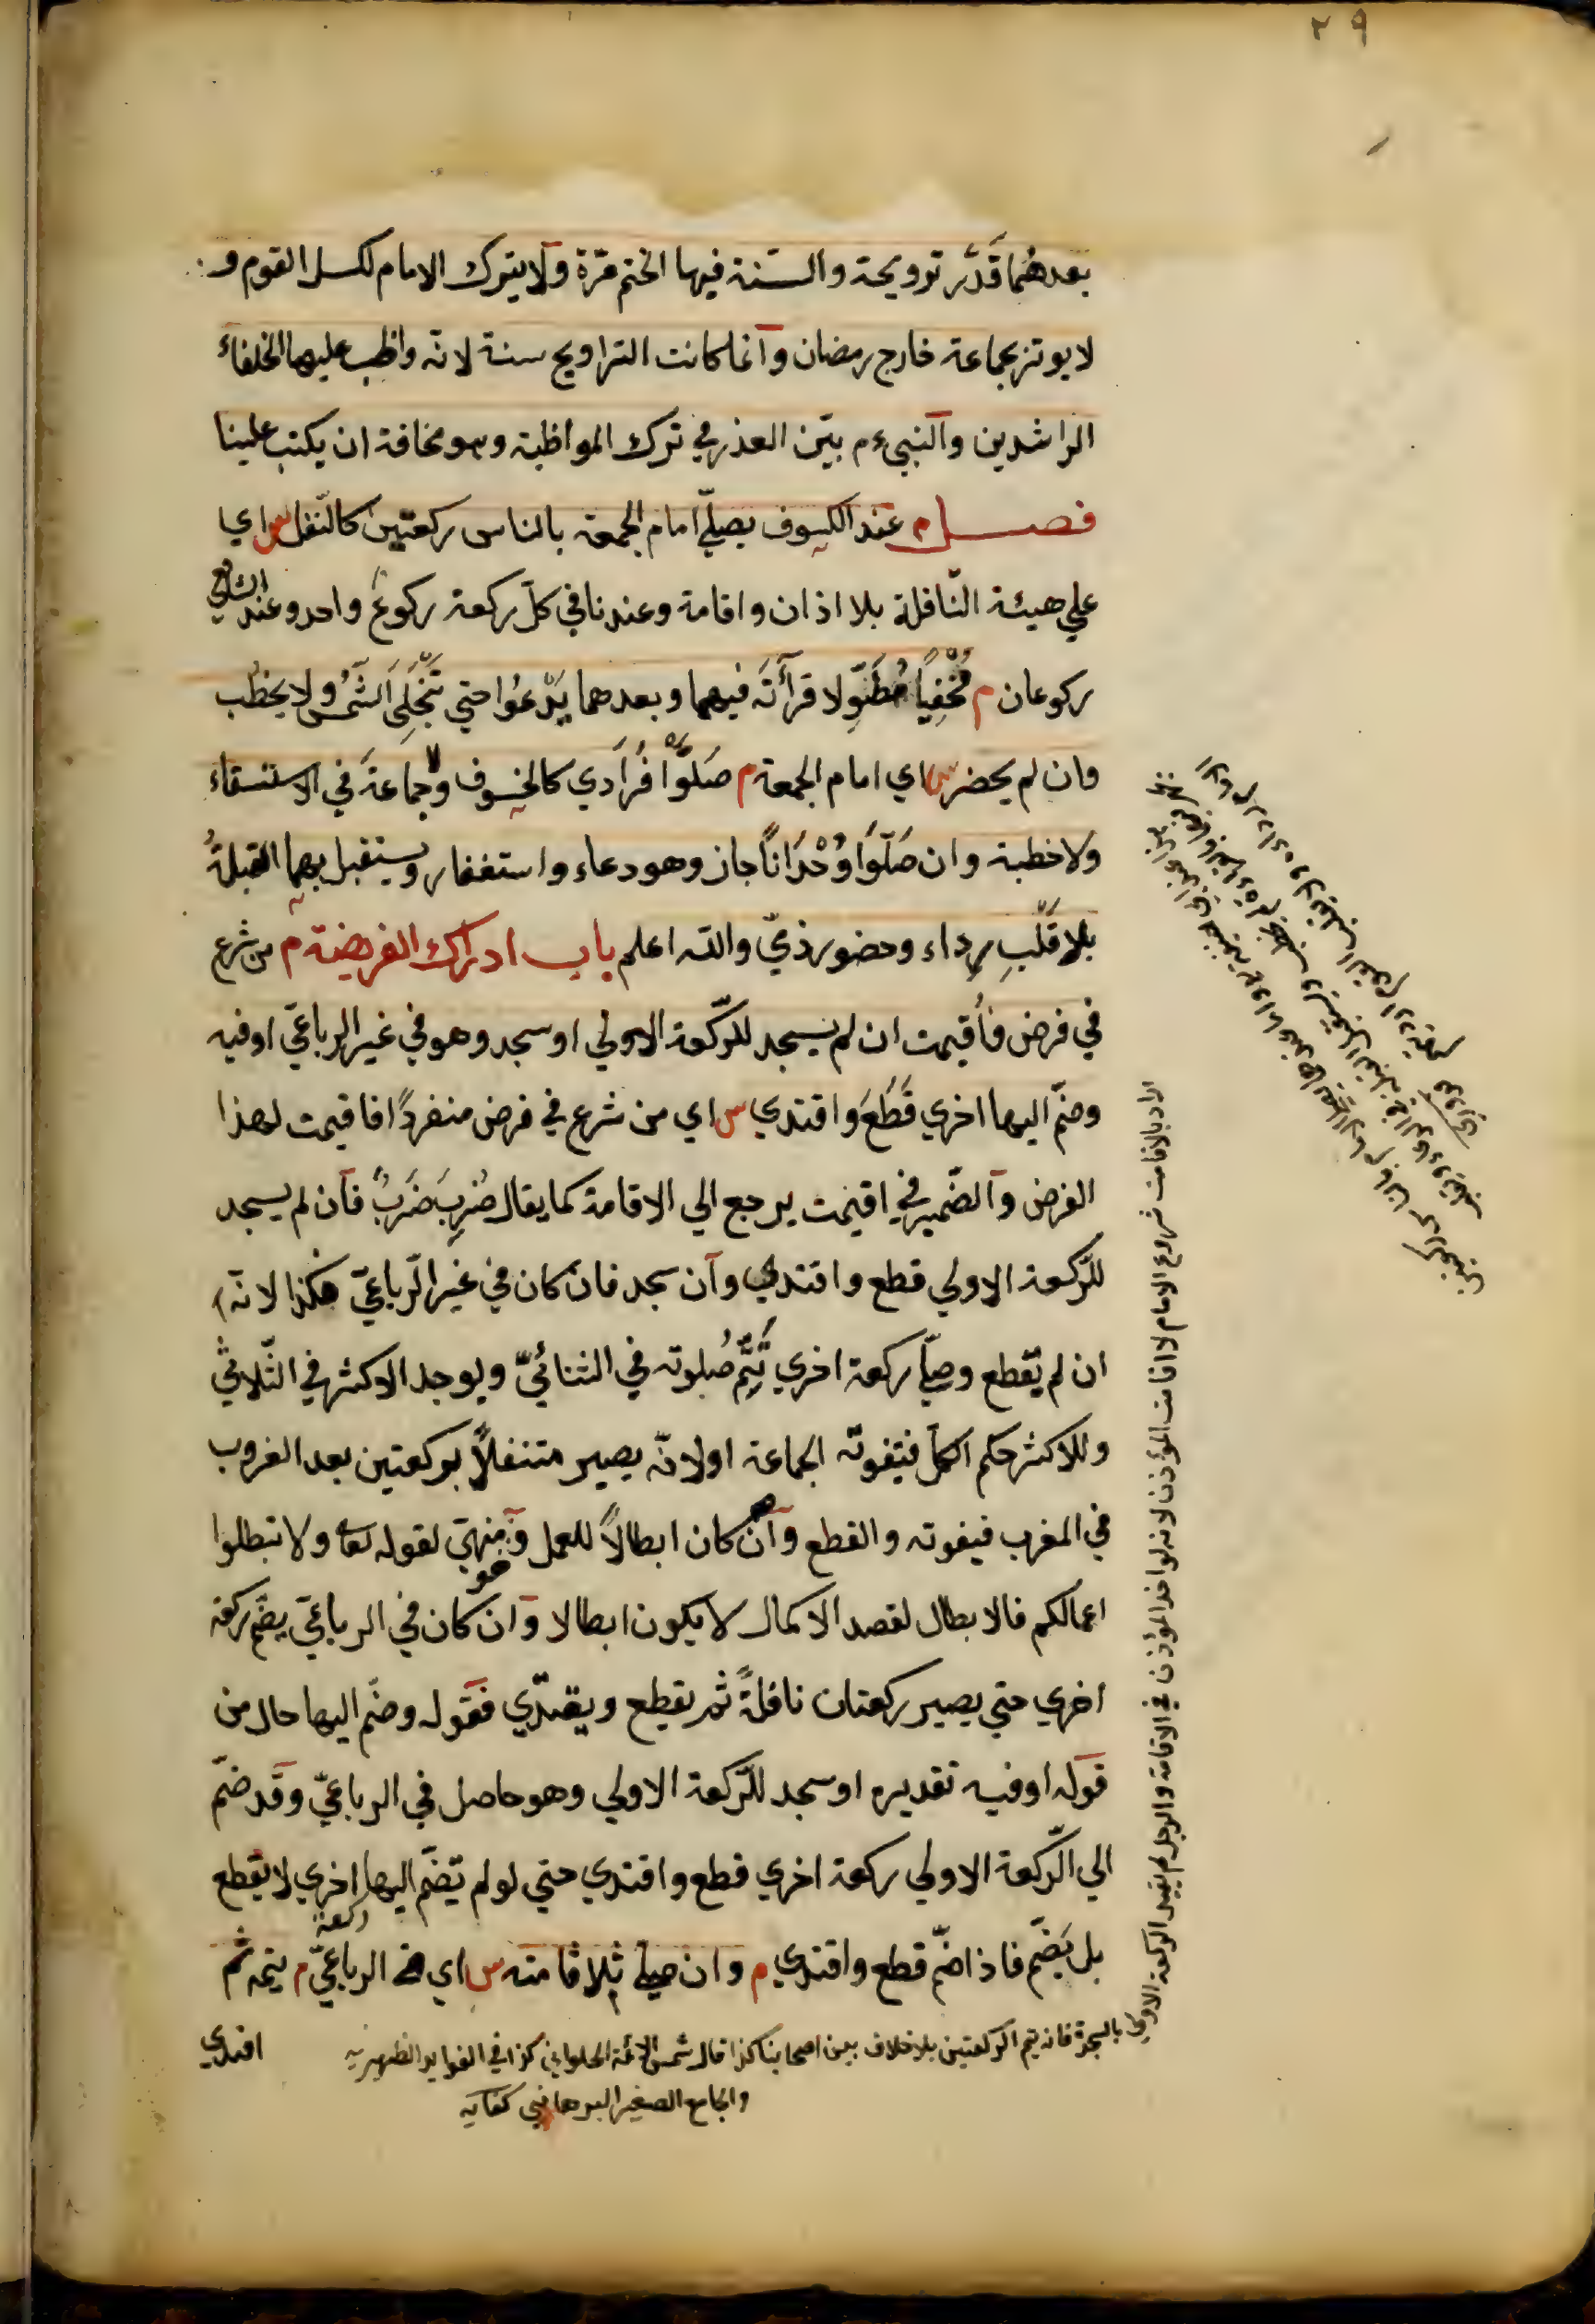 ٢٩
بعدهُما قَدْر ترويحة والسّنة فيها الختم مرّة ولا يترك الامام لكسل القوم و
لا يوتر بجماعة خارج رمضان وانما كانت التراويح سنة لانّه واظب عليها الخلفاء
الراشدين والنبي ءم بيّن العذر في ترك المواظبة وهو مخافة ان يكتب علينا
فصل م عند الكسوف يصلّي امام الجمعة بالناس ركعتين كالنّفل س اي
علي هيئة النّافلة بلا اذان واقامة وعندنا في كلّ ركعة ركوعٌ واحد وعند الشافعي
ركوعان م مُخْفِيًا مُطَوِّلا قرأتَه فيهما وبعدهما يَدْعُوا حتي تَنْجَلِيَ الشَّمسُ ولا يخطُب
وان لم يحضر س اي امام الجمعة م صَلَّوْا فُرَادي كالخسوف ولا جماعةَ في الاستسقاء
ولا خطبة وان صَلَّوَا وُحْدَانًا جاز وهو دعاء واستغفار ويستقبل بهما القبلةُ
بلا قَلْبِ رداء وحضور ذميّ والله اعلم باب ادراك الفريضة م من شرع
في فرض فأُقيمت ان لم يسجد للرّكعة الاولي او سجد وهو في غير الرباعيّ او فيه
وضمّ اليها اخري قَطَعَ واقتدي س اي من شرع في فرض منفردًا فاقيمت لهذا
الفرض والضّمير في اقيمت يرجع الي الاقامة كما يقال ضُرِبَ ضَرْبٌ فان لم يسجد
للرّكعة الاولي قطع واقتدي وان سجد فان كان في غير الرّباعيّ فكذا لانّه
ان لم يقطع وصلّي ركعة اخري تَتِمُّ صلوته في الثنائيّ ويوجد الاكثر في الثّلاثيّ
وللاكثر حكم الكلّ فتفوته الجماعة او لانّه يصير متنفلاً بركعتين بعد الغروب
في المغرب فيفوته والقطع وان كان ابطالاً للعمل وهو منهيّ لقوله تعا ولا تبطلوا
اعمالكم فالابطال لقصد الاكمال لا يكون ابطالا وان كان في الرباعيّ يضّم ركعة
اخري حتي يصير ركعتان نافلةً ثم يقطع ويقتدي فقوله وضّم اليها حال من
قوله او فيه تقديره او سجد للرّكعة الاولي وهو حاصل في الرباعيّ وقد ضمّ
الي الرّكعة الاولي ركعة اخري قطع واقتدي حتي لو لم يضّم اليها اخري لا يقطع
بل يَضُّم فاذا ضمّ قطع واقتدي م وان صلي ثلاثا منه س اي من الرباعيّ م يتمه ثم
ركعة
اقتدي
الاد بالاقامت شروع الامام لا اقامت المؤذن لانه لو اخذ المؤذن في الاقامة والرجل لم يقيد الركعة الاولي
بالسجدة فانه يتم الركعتين بلا خلاف بين اصحابنا كذا قال شمس الائمة الحلواني كذا في الفوايد الظهيريه
والجامع الصغير البرهاني كفايه